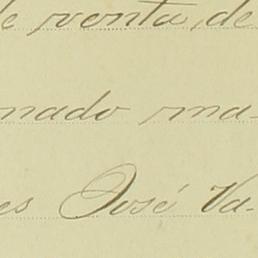 de venta, de
nado ma-
es José Va-